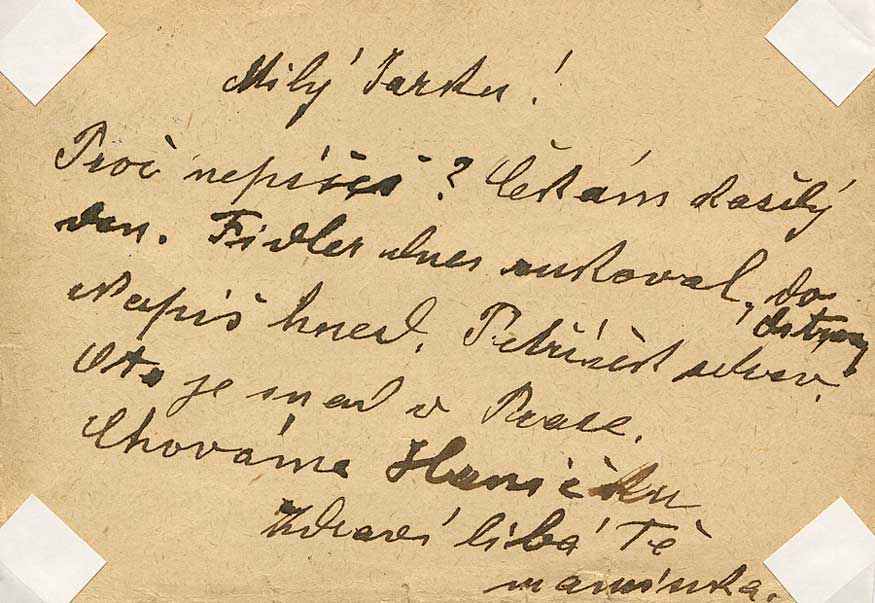 Milý Jarku!
Proč nepíšeš? Čekám každý
den. Fidler dnes rukoval, do
Ostravy
Napiš hned. Petříček zdráv.
Ota je snad v Praze.
Chováme Haničku
Zdraví líbá Tě
maminka.